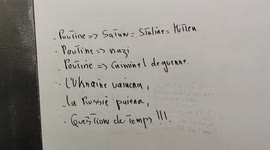 - Poutine => Satan = Staline = Hitler
- Poutine => nazi
- Poutine => Criminel de guerre.
- L'Ukraine vaincra,
- la Russie paiera,
- Question de temps !!!